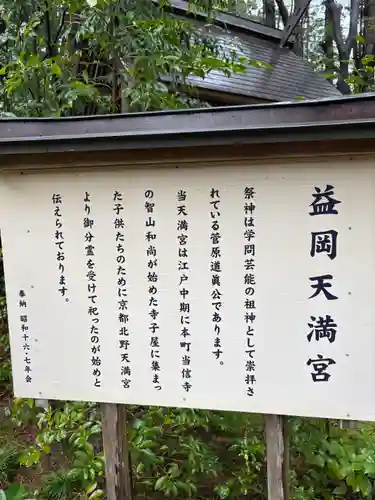 益岡天満宮
祭神は学問芸能の祖神として崇拝さ
れている菅原道眞公であります。
当天満宮は江戸中期に本町当信寺
の智山和尚が始めた寺子屋に集まっ
た子供たちのために京都北野天満宮
より御分霊を受けて祀ったのが始めと
伝えられております。
奉納 昭和十六・七年会